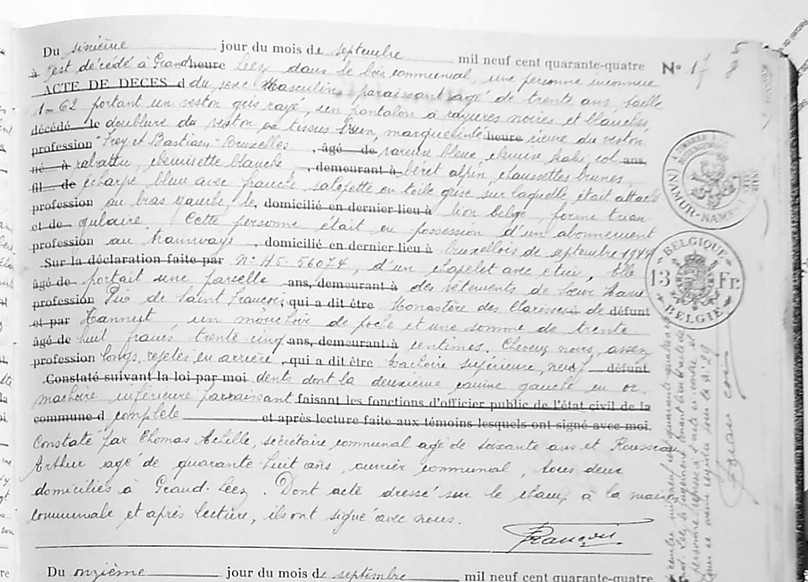 Du sixième jour du mois de septembre mil neuf cent quarante-quatre
N° 17
à heure est décédé à Grand Leez dans le bois communal, une personne inconnue
ACTE DE DECES d du sexe Masculin, paraissant âgé de trente ans, taille
1m62 portant un veston gris rayé, un pantalon à rayures noires et blanches,
décédé le doublure du veston en tissus brun, marque heure rieure du veston
profession "Frey et Bastiaen-Bruxelles , âgé de bleue, chemise kaki, col ans
né à rabattu, chemisette blanche , demeurant à béret alpin, chaussettes brunes,
fil de écharpe bleue avec salopette en toile grise sur laquelle était attaché
profession au bras gauche, le domicilié en dernier lieu à lion belge, forme trian-
et de gulaire. Cette personne était en possession d'un abonnement
profession au tramways , domicilié en dernier lieu à bruxellois de septembre 1944
Sur la déclaration faite par N° H5-56074, d'un chapelet avec étui. Elle
âgé de portait une parcelle ans, demeurant à des vêtements de Sœur Marie
profession Pio de Saint François, qui a dit être Monastère des Clarisses de défunt
et par Hannut, un mouchoir de poche et une somme de trente
âgé de huit francs trente cinq ans, demeurant à centimes. Cheveux noirs, assez
profession longs, rejetés en arrière, qui a dit être machoire supérieure, neuf défunt
Constaté suivant la loi par moi dents dont la deuxième canine gauche en or.
machoire inférieure paraissant faisant les fonctions d'officier public de l'état civil de la
commune d complète et après lecture faite aux témoins lesquels ont signé avec moi.
Constaté par Thomas Achille, secrétaire communal âgé de soixante ans et Rousseau
Arthur âgé de quarante huit ans, ouvrier communal, tous deux
domiciliés à Grand-Leez. Dont acte dressé sur le champ à la maison
communale et après lecture, ils ont signé avec nous.
François
Du onzième jour du mois de septembre mil neuf cent quarante-quatre
NAMUR-NAMEN
BELGIQUE
13 Fr.
BELGIE